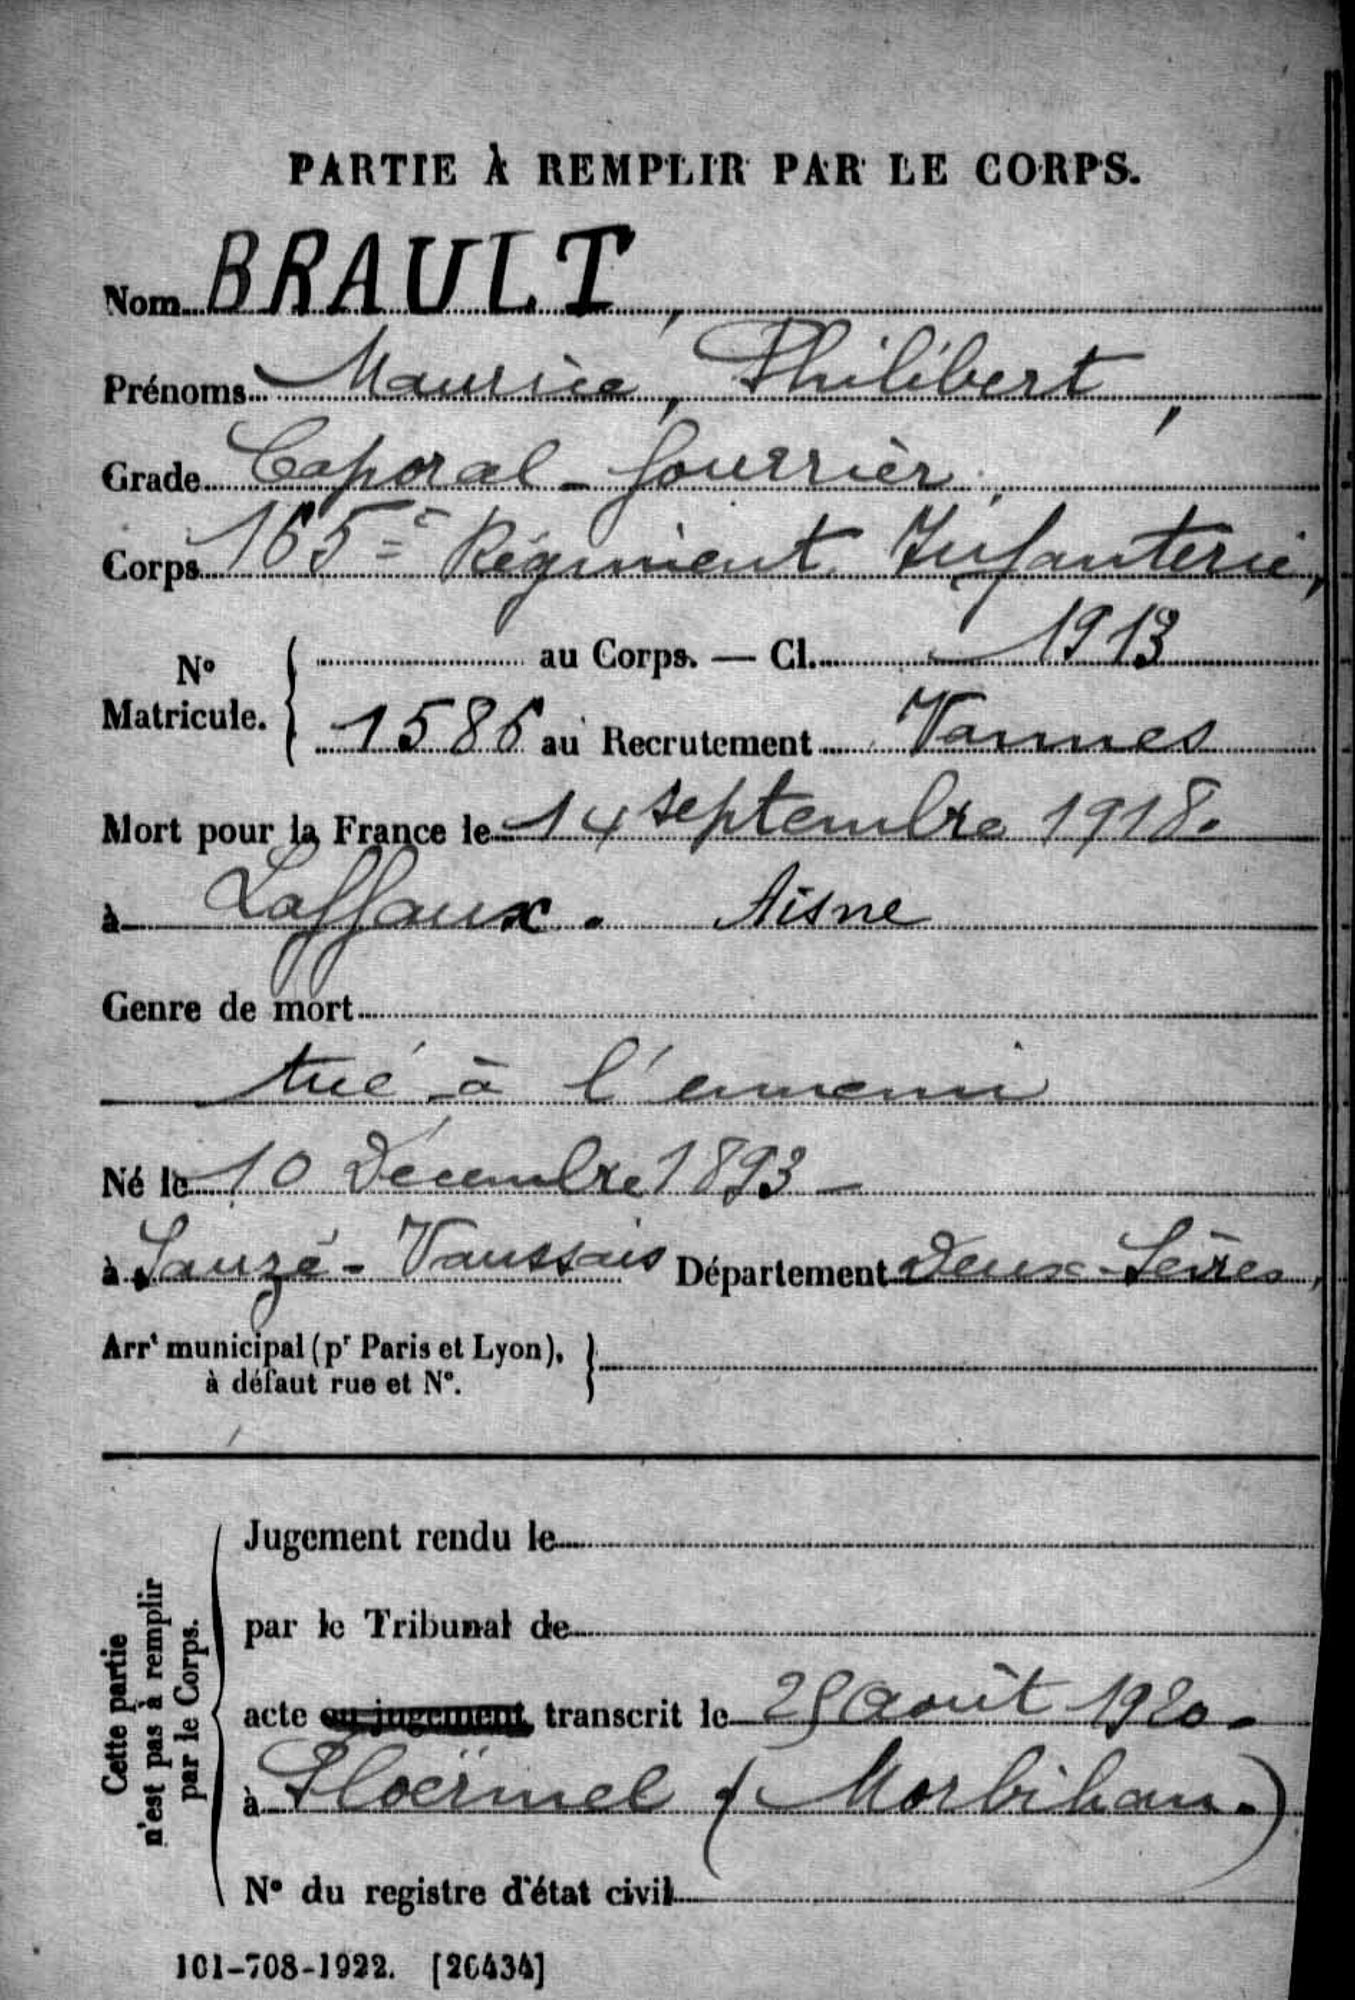 PARTIE À REMPLIR PAR LE CORPS.
Nom BRAULT,
Prénoms Maurice, Philibert,
Grade Caporal-fourrier,
Corps 165e Régiment Infanterie,
N° Matricule. { au Corps. — Cl. 1913
1586 au Recrutement Vannes
Mort pour la France le 14 septembre 1918.
à Laffaux. Aisne
Genre de mort
tué à l'ennemi
Né le 10 Décembre 1893 -
à Sauzé-Vaussais Département Deux-Sèvres,
Arrt municipal (pr Paris et Lyon), }
à défaut rue et N°.
Cette partie
n'est pas à remplir
par le Corps.
Jugement rendu le
par le Tribunal de
acte ou jugement transcrit le août 1920.
à Ploërmel (Morbihan.)
N° du registre d'état civil
101-708-1922. [26434]